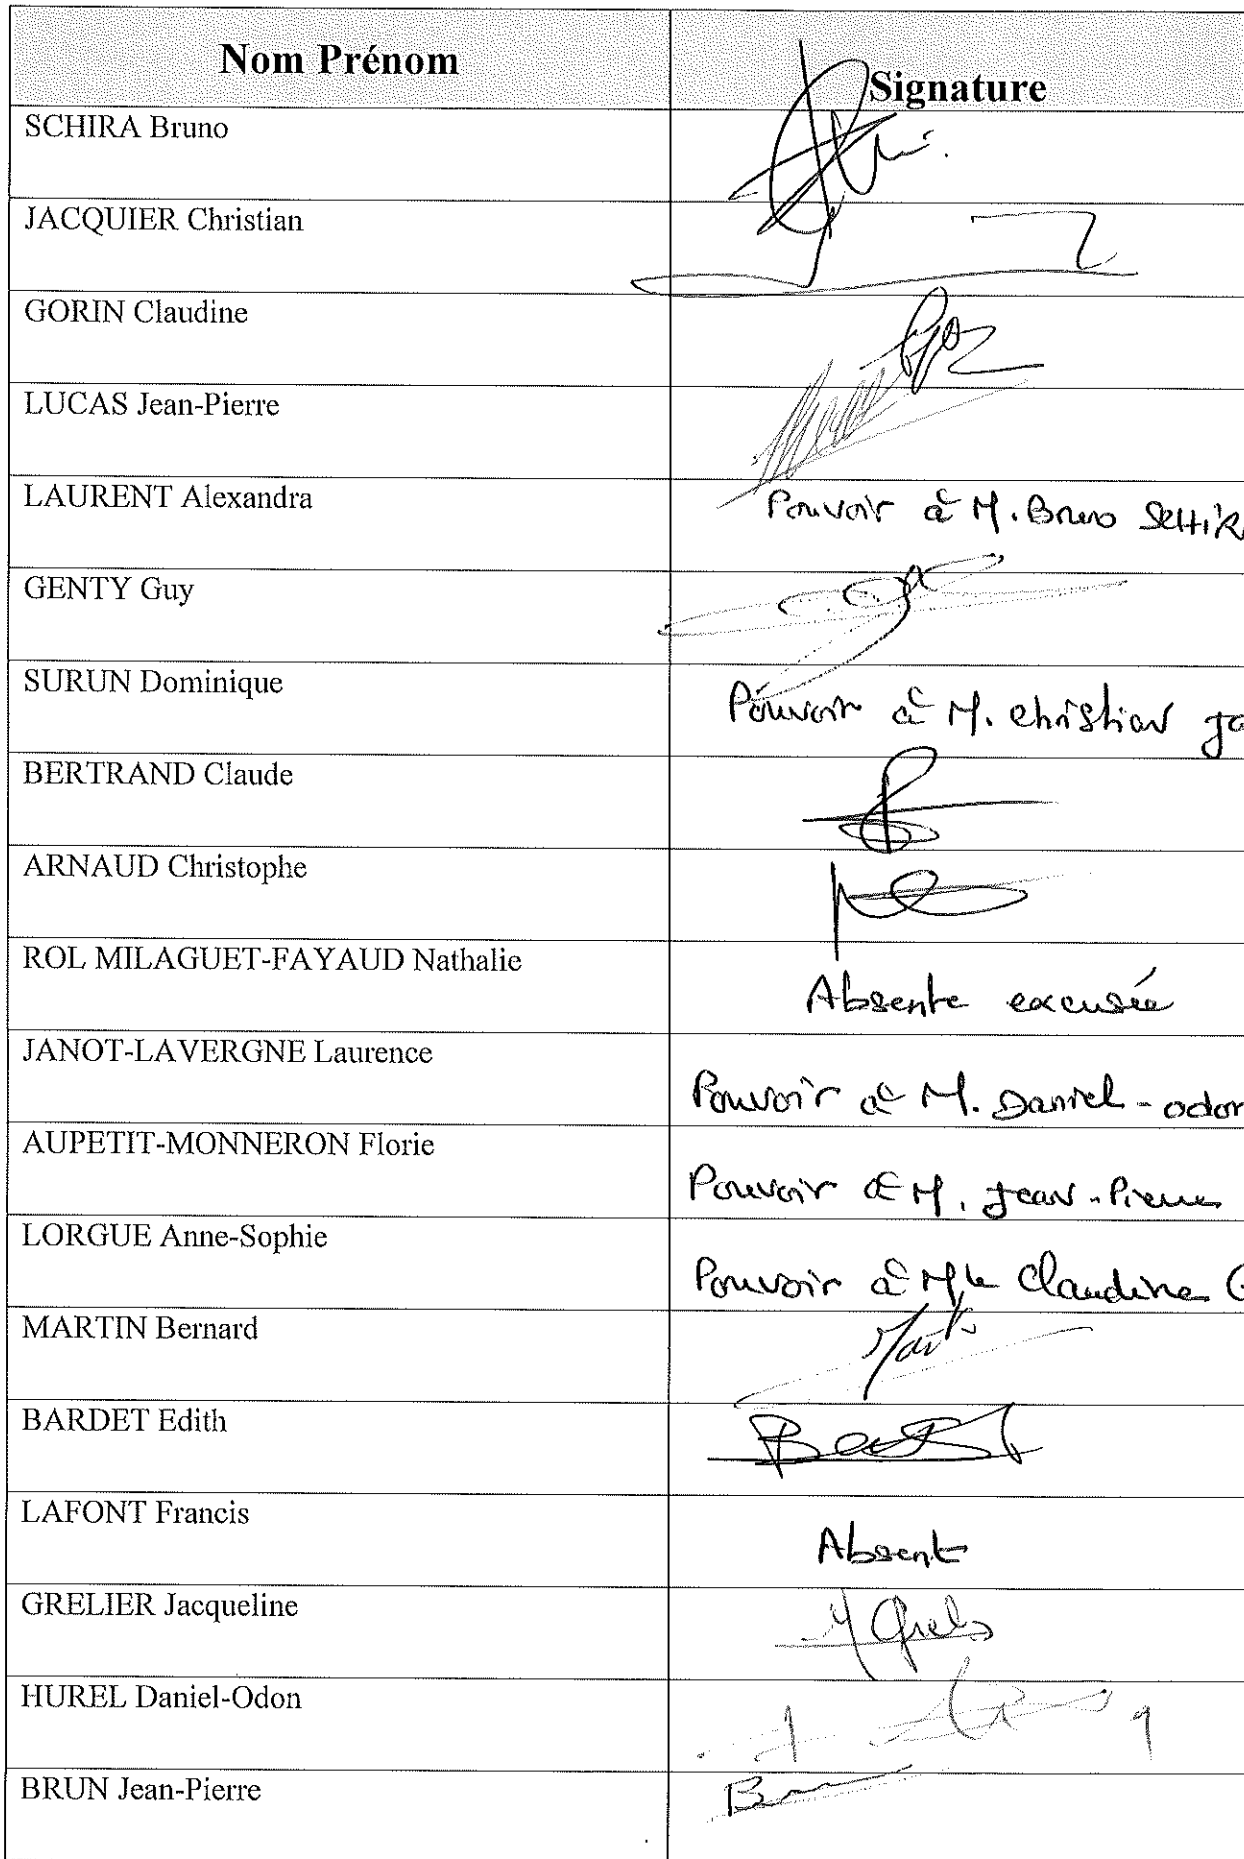 Nom Prénom
Signature
SCHIRA Bruno
JACQUIER Christian
GORIN Claudine
LUCAS Jean-Pierre
LAURENT Alexandra
Pouvoir à M. Bruno SCHIR
GENTY Guy
SURUN Dominique
Pouvoir à M. Christian Ja
BERTRAND Claude
ARNAUD Christophe
ROL MILAGUET-FAYAUD Nathalie
Absente excusée
JANOT-LAVERGNE Laurence
Pouvoir à M. Daniel-Odon
AUPETIT-MONNERON Florie
Pouvoir à M. Jean-Pierre
LORGUE Anne-Sophie
Pouvoir à Mme Claudine G
MARTIN Bernard
BARDET Edith
LAFONT Francis
Absent
GRELIER Jacqueline
HUREL Daniel-Odon
BRUN Jean-Pierre